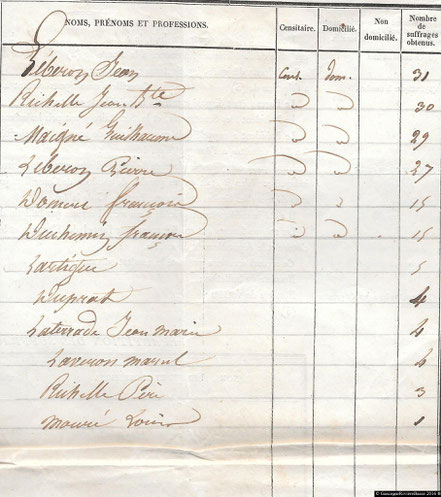 NOMS, PRÉNOMS ET PROFESSIONS. Censitaire. Domicilié. Non domicilié. Nombre de suffrages obtenus.
Léberon Jean Cens. Dom. 31
Richelle Jean Bte 30
Maigné Guillaume 29
Léberon Pierre 27
françois 15
françois 15
Lartigue 5
Duprat 4
Laterrade Jean marie 4
Laveron 4
Richelle Père 3
mauré Louis 1